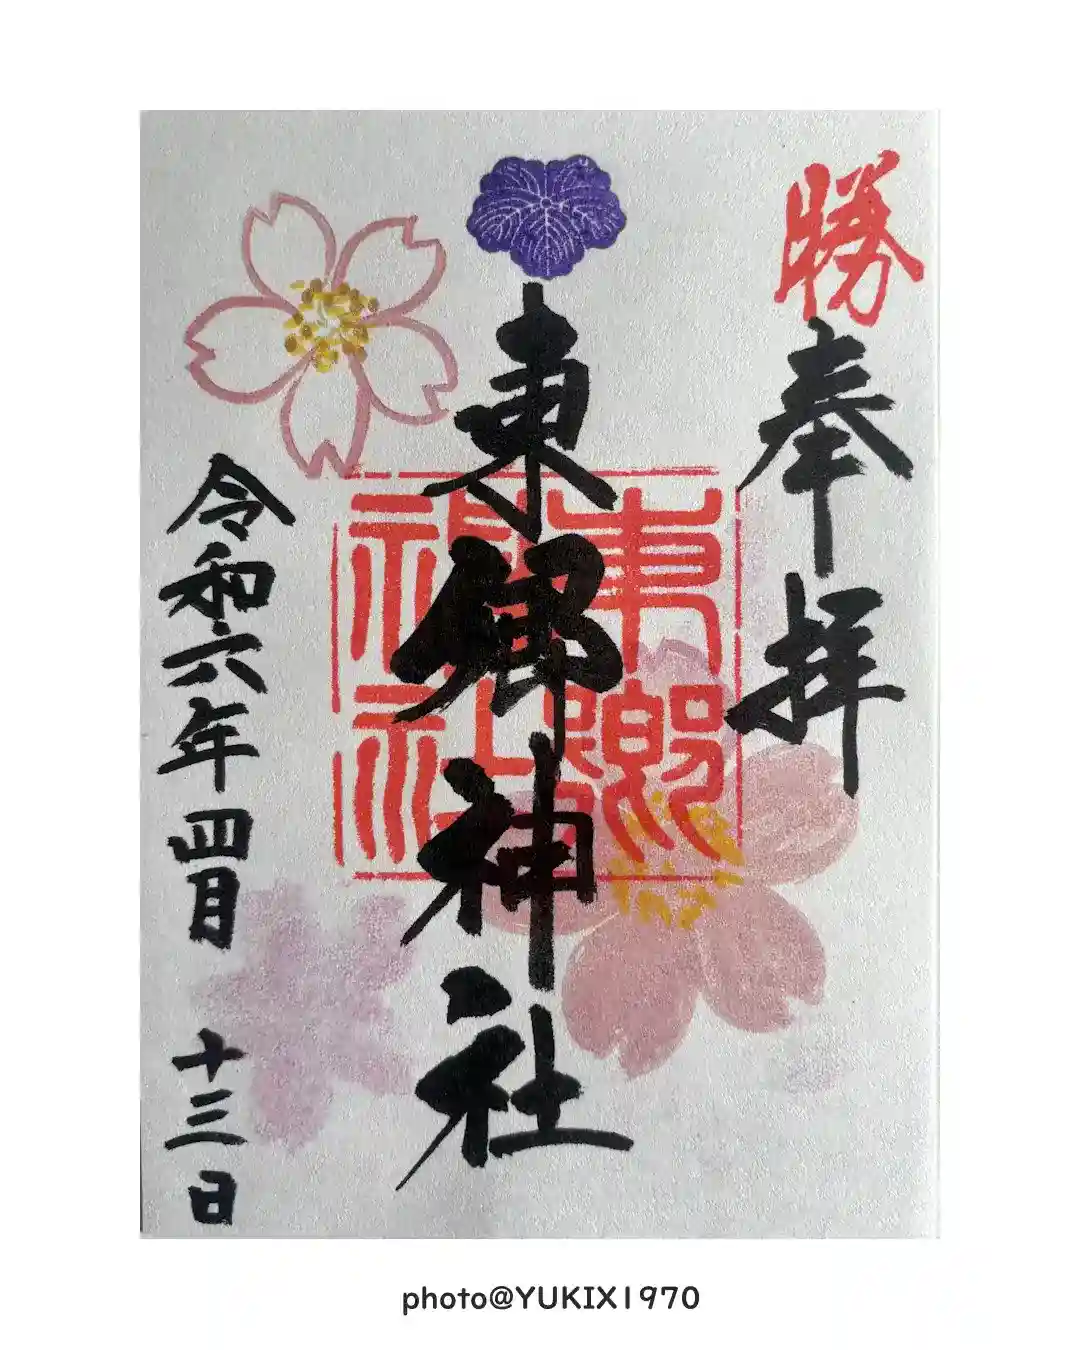 勝
奉拝
東郷神社
東郷
神社
令和六年四月十三日
photo@YUKIX1970